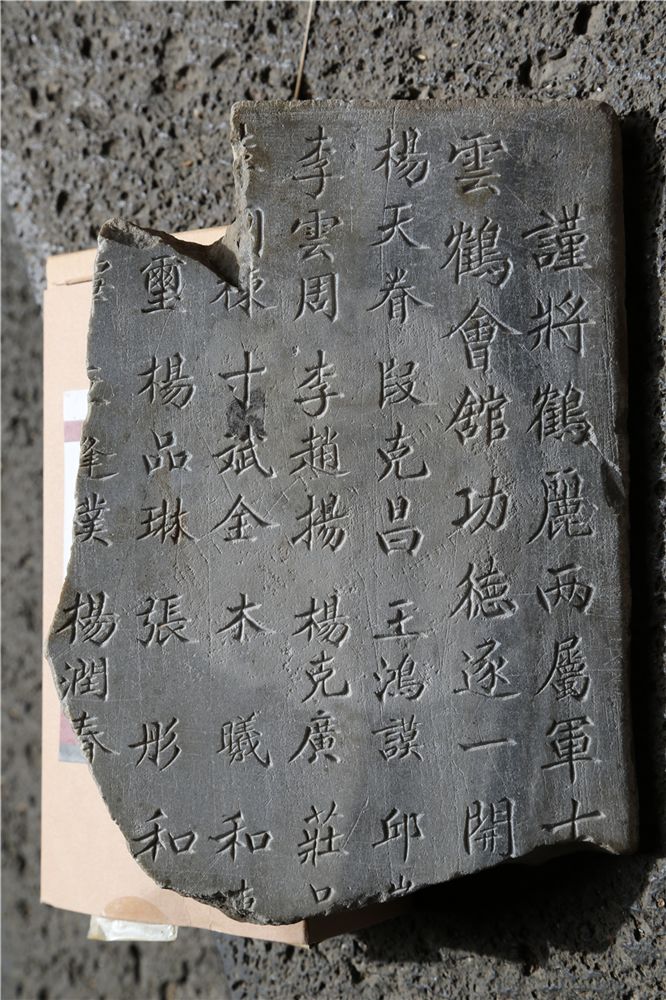 謹將鶴麗兩屬軍士
雲鶴會館功德逐一開
楊天眷 段克昌 王鴻謨 邱
李雲周 李趙揚 楊克廣 莊
寸斌金 木曦 和
璽 楊品琳 張彤 和
楊潤奉